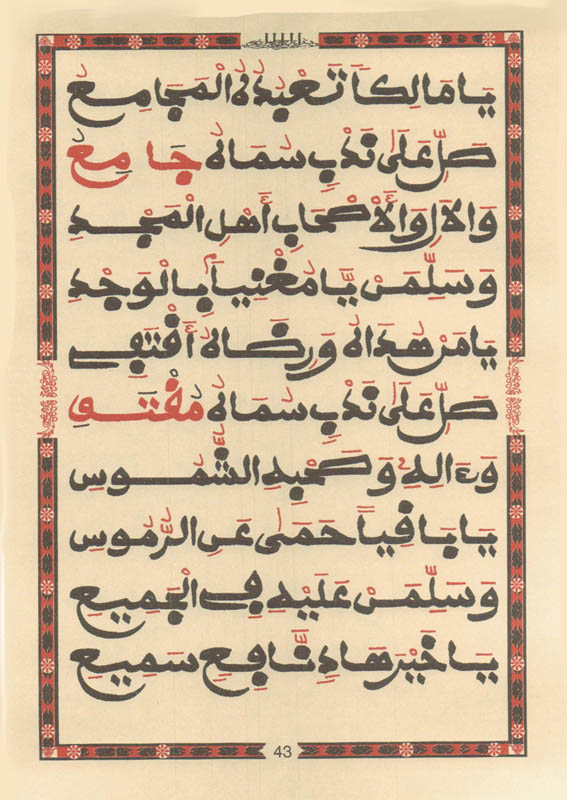 يَا مَالِكاً تَعْبُدُهُ الْمَجَامِعُ
صَلِّ عَلَى نَدْبٍ سُمَاهُ جَامِعُ
وَالْآلِ وَالْأَصْحَابِ أَهْلِ الْمَجْدِ
وَسَلِّمَنْ يَّا مُغْنِياً بِالْوَجْدِ
يَا مَنْ هُدَاهُ وَرِضَاهُ أَقْتَفِي
صَلِّ عَلَى نَدْبٍ سُمَاهُ مُقْتَفِ
وَءَالِهِ وَصَحْبِهِ الشُّمُوسِ
يَا بَاقِياً حَمَى عَنِ الرُّمُوسِ
وَسَلِّمَنْ عَلَيْهِ فِي الْجَمِيعِ
يَا خَيْرَ هَادٍ نَّافِعٍ سَمِيعِ
43